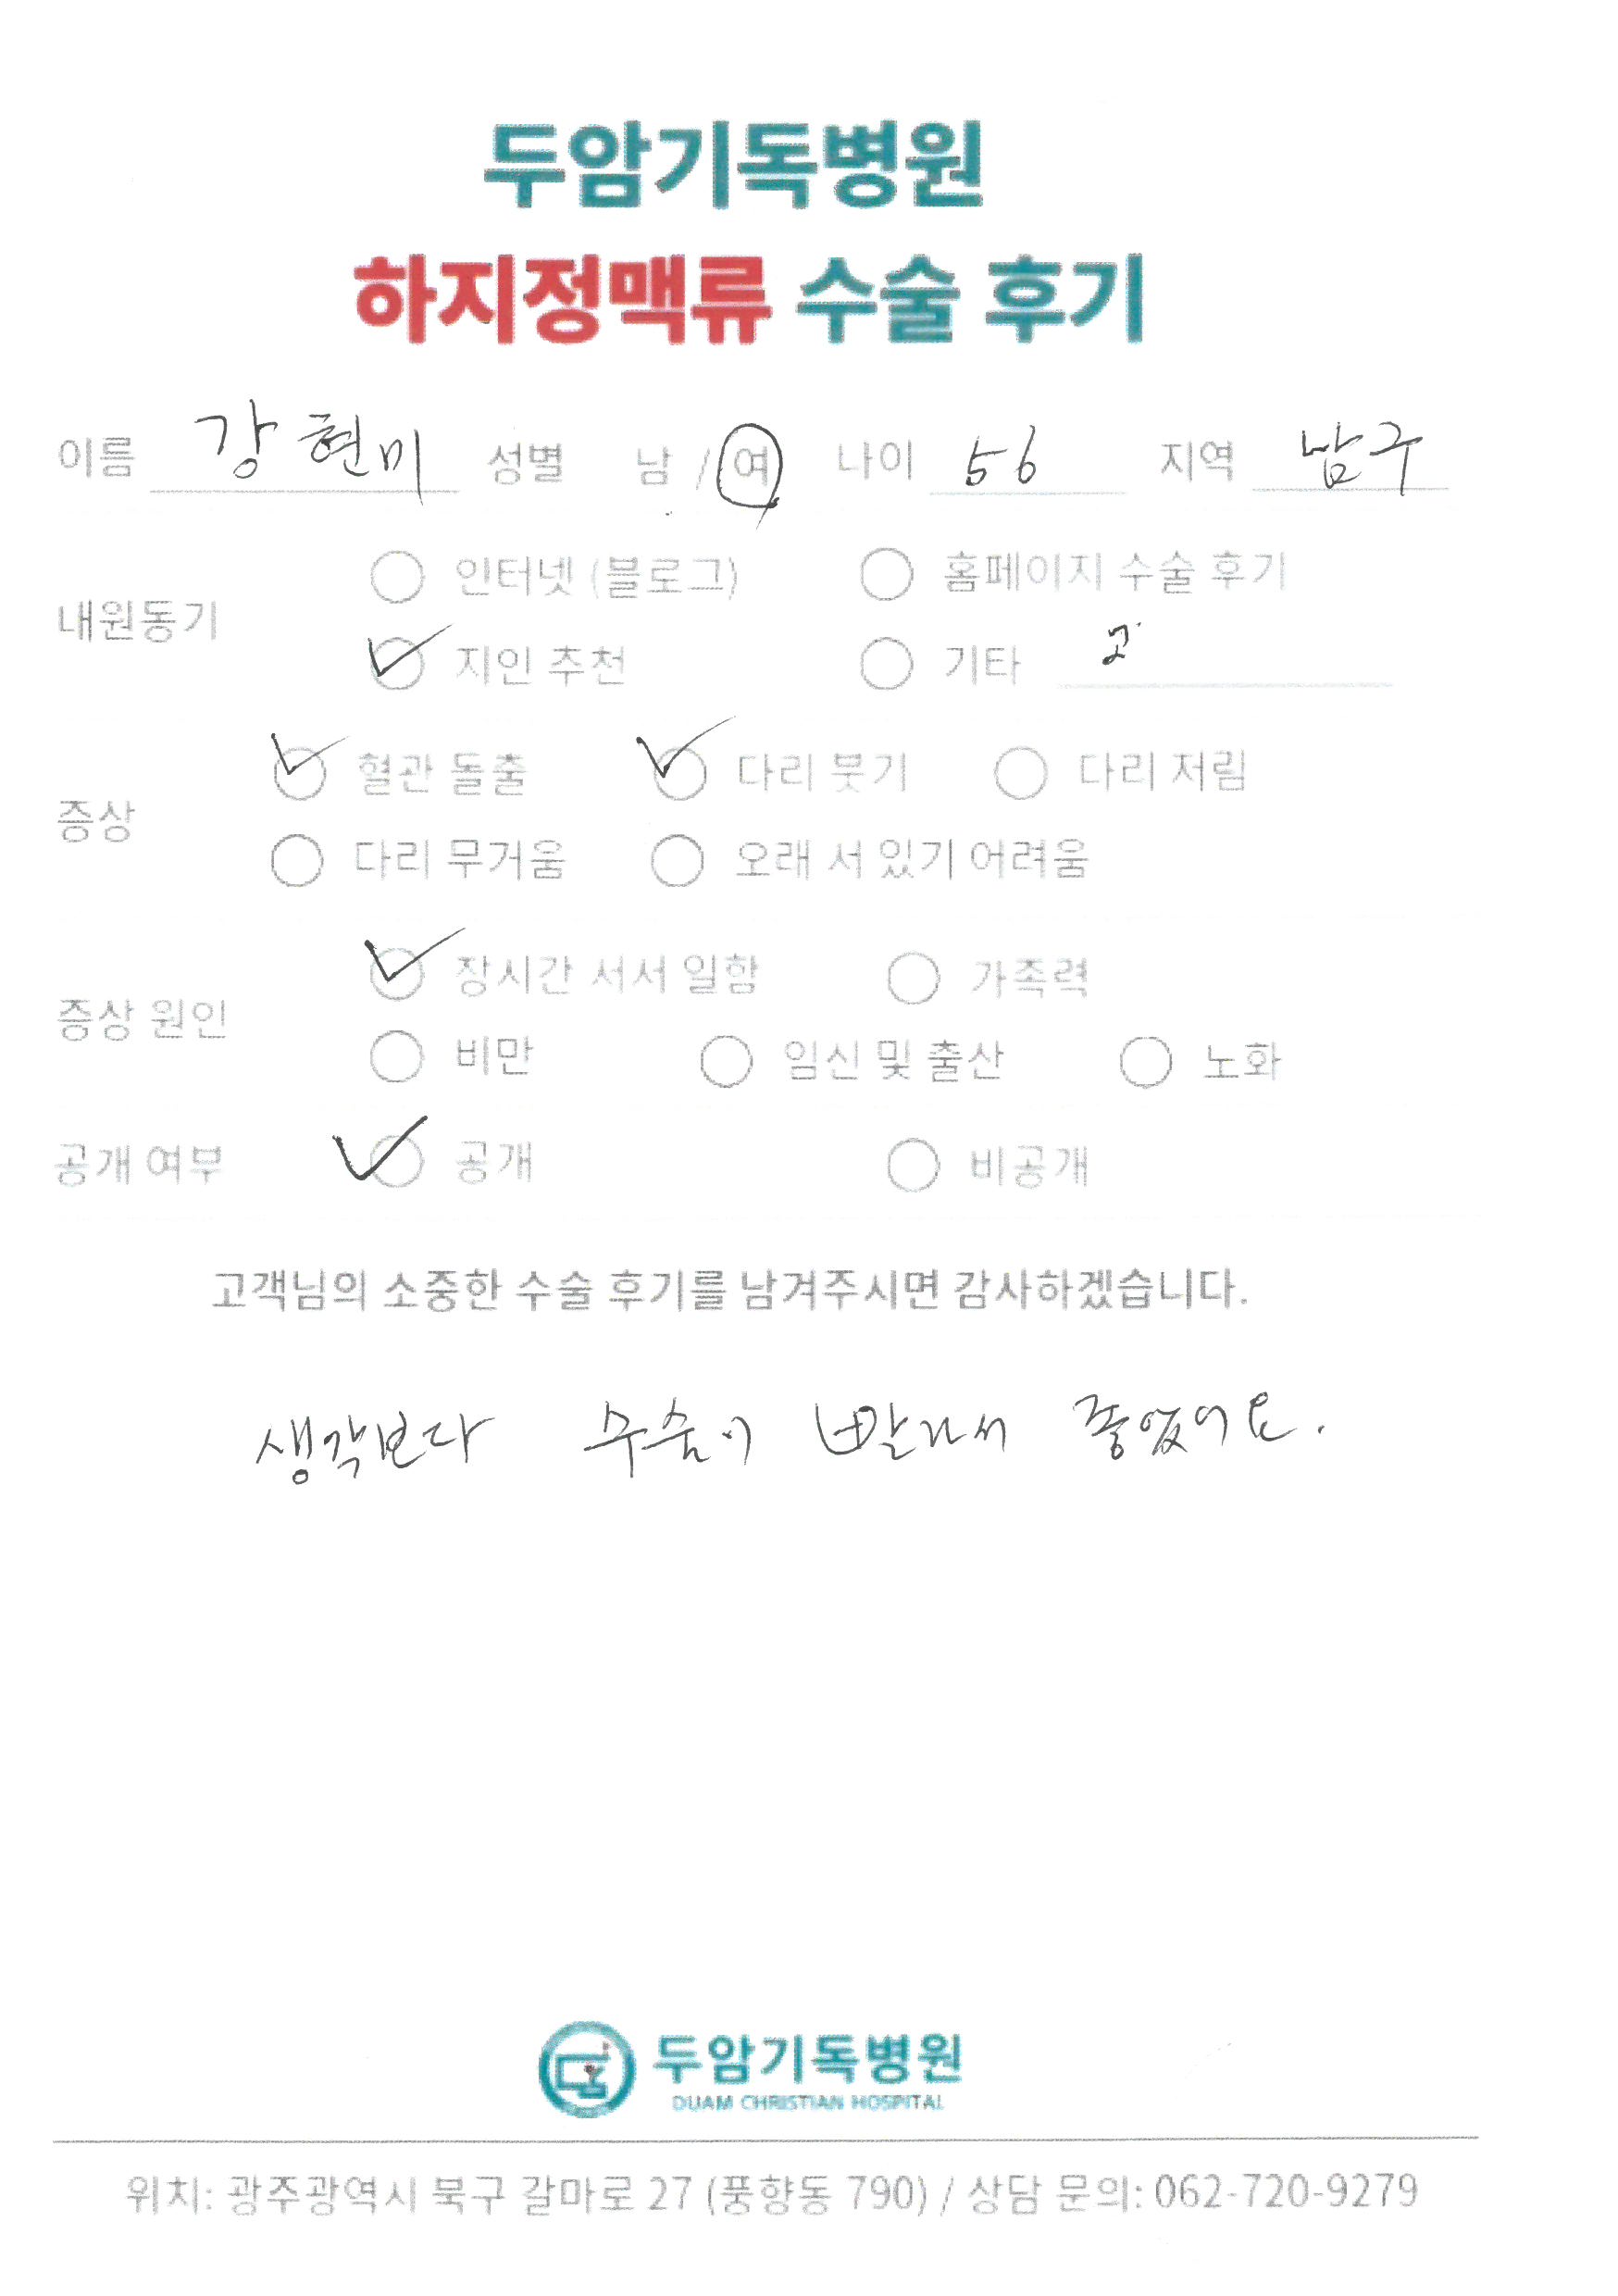 두암기독병원
하지정맥류 수술 후기
이름 강현미 성별 남 / 여 나이 56 지역 남구
인터넷 (블로그) 홈페이지 수술 후기
내원동기
지인 추천 기타
혈관 돌출 다리 붓기 다리 저림
증상
다리 무거움 오래 서 있기 어려움
장시간 서서 일함 가족력
증상 원인
비만 임신 및 출산 노화
공개 여부 공개 비공개
고객님의 소중한 수술 후기를 남겨주시면 감사하겠습니다.
생각보다 수술이 빨라서 좋았어요.
두암기독병원
DUAM CHRISTIAN HOSPITAL
위치: 광주광역시 북구 갈마로 27 (풍향동 790) / 상담 문의: 062-720-9279